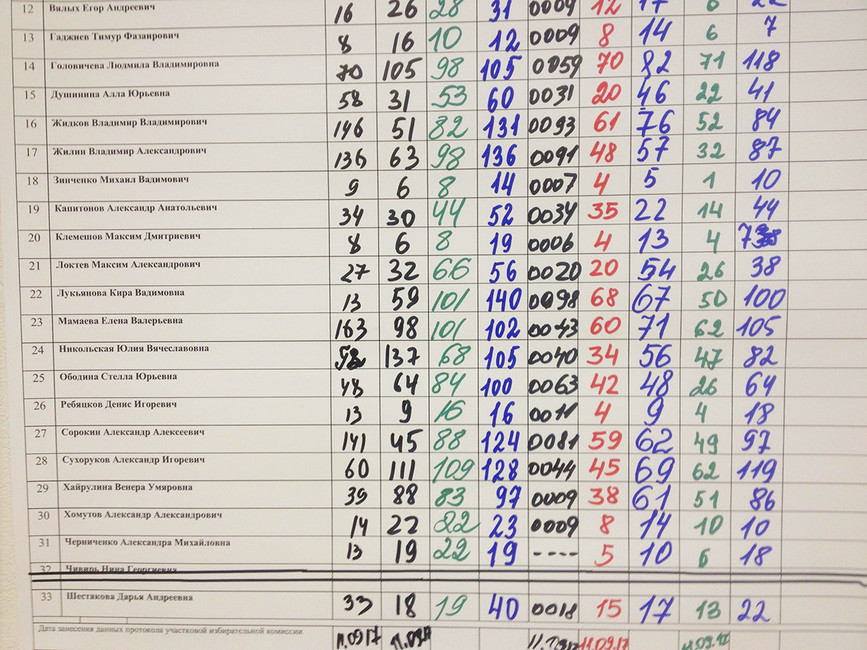 12 Вилых Егор Андреевич 16 26 28 31 0009 12 17 6 22
13 Гаджиев Тимур Фазаирович 8 16 10 12 0009 8 14 6 7
14 Головичева Людмила Владимировна 70 105 98 105 0059 70 82 71 118
15 Душинина Алла Юрьевна 58 31 53 60 0031 20 46 22 41
16 Жидков Владимир Владимирович 146 51 82 131 0093 61 76 52 84
17 Жилин Владимир Александрович 136 63 98 136 0091 48 57 32 87
18 Зинченко Михаил Вадимович 9 6 8 14 0007 4 5 1 10
19 Капитонов Александр Анатольевич 34 30 44 52 0034 35 22 14 44
20 Клемешов Максим Дмитриевич 8 6 8 19 0006 4 13 4
21 Локтев Максим Александрович 27 32 66 56 0020 20 54 26 38
22 Лукьянова Кира Вадимовна 13 59 101 140 0098 68 67 50 100
23 Мамаева Елена Валерьевна 163 98 101 102 0043 60 71 62 105
24 Никольская Юлия Вячеславовна 137 68 105 0040 34 56 47 82
25 Ободина Стелла Юрьевна 48 64 84 100 0063 42 48 26 64
26 Ребяцков Денис Игоревич 13 9 16 16 0011 4 9 4 18
27 Сорокин Александр Алексеевич 141 45 88 124 0081 59 62 49 97
28 Сухоруков Александр Игоревич 60 111 109 128 0044 45 69 62 119
29 Хайрулина Венера Умяровна 39 88 83 97 0009 38 61 51 86
30 Хомутов Александр Александрович 14 22 22 23 0009 8 14 10 10
31 Черниченко Александра Михайловна 13 19 22 19 ---- 5 10 6 18
32 Чивирь Нина Георгиевна
33 Шестакова Дарья Андреевна 33 18 19 40 0018 15 17 13 22
Дата занесения данных протокола участковой избирательной комиссии 11.0917 11.09.17